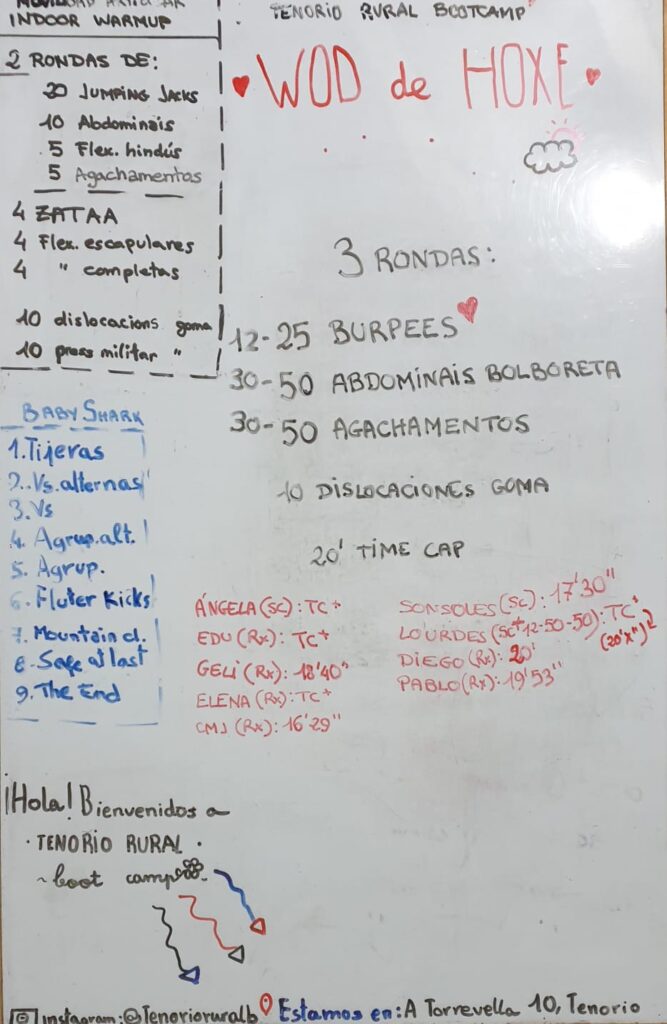 INDOOR WARMUP
2 RONDAS DE:
20 JUMPING JACKS
10 Abdominais
5 Flex. hindús
5 Agachamentos
4 ZATAA
4 Flex. escapulares
4 " completas
10 dislocacions goma
10 press militar "
BABY SHARK
1. Tijeras
2. Vs. alternas
3. Vs
4. Agrup. alt.
5. Agrup.
6. Fluter Kicks
7. Mountain cl.
8. Safe at last
9. The End
TENORIO RURAL BOOTCAMP
WOD de HOXE
3 RONDAS:
12-25 BURPEES
30-50 ABDOMINAIS BOLBORETA
30-50 AGACHAMENTOS
10 DISLOCACIONES GOMA
20' TIME CAP
ÁNGELA (SC): TC+
EDU (Rx): TC+
GELI (Rx): 18'40"
ELENA (Rx): TC+
CMJ (Rx): 16'29"
SONSOLES (SC): 17'30"
LOURDES (SC+ 12-50-50): TC+
(20'X")
DIEGO (Rx): 20'
PABLO (Rx): 19'53"
¡Hola! Bienvenidos a
· TENORIO RURAL ·
~ boot camp
Instagram: @Tenorioruralb Estamos en: A Torrevella 10, Tenorio